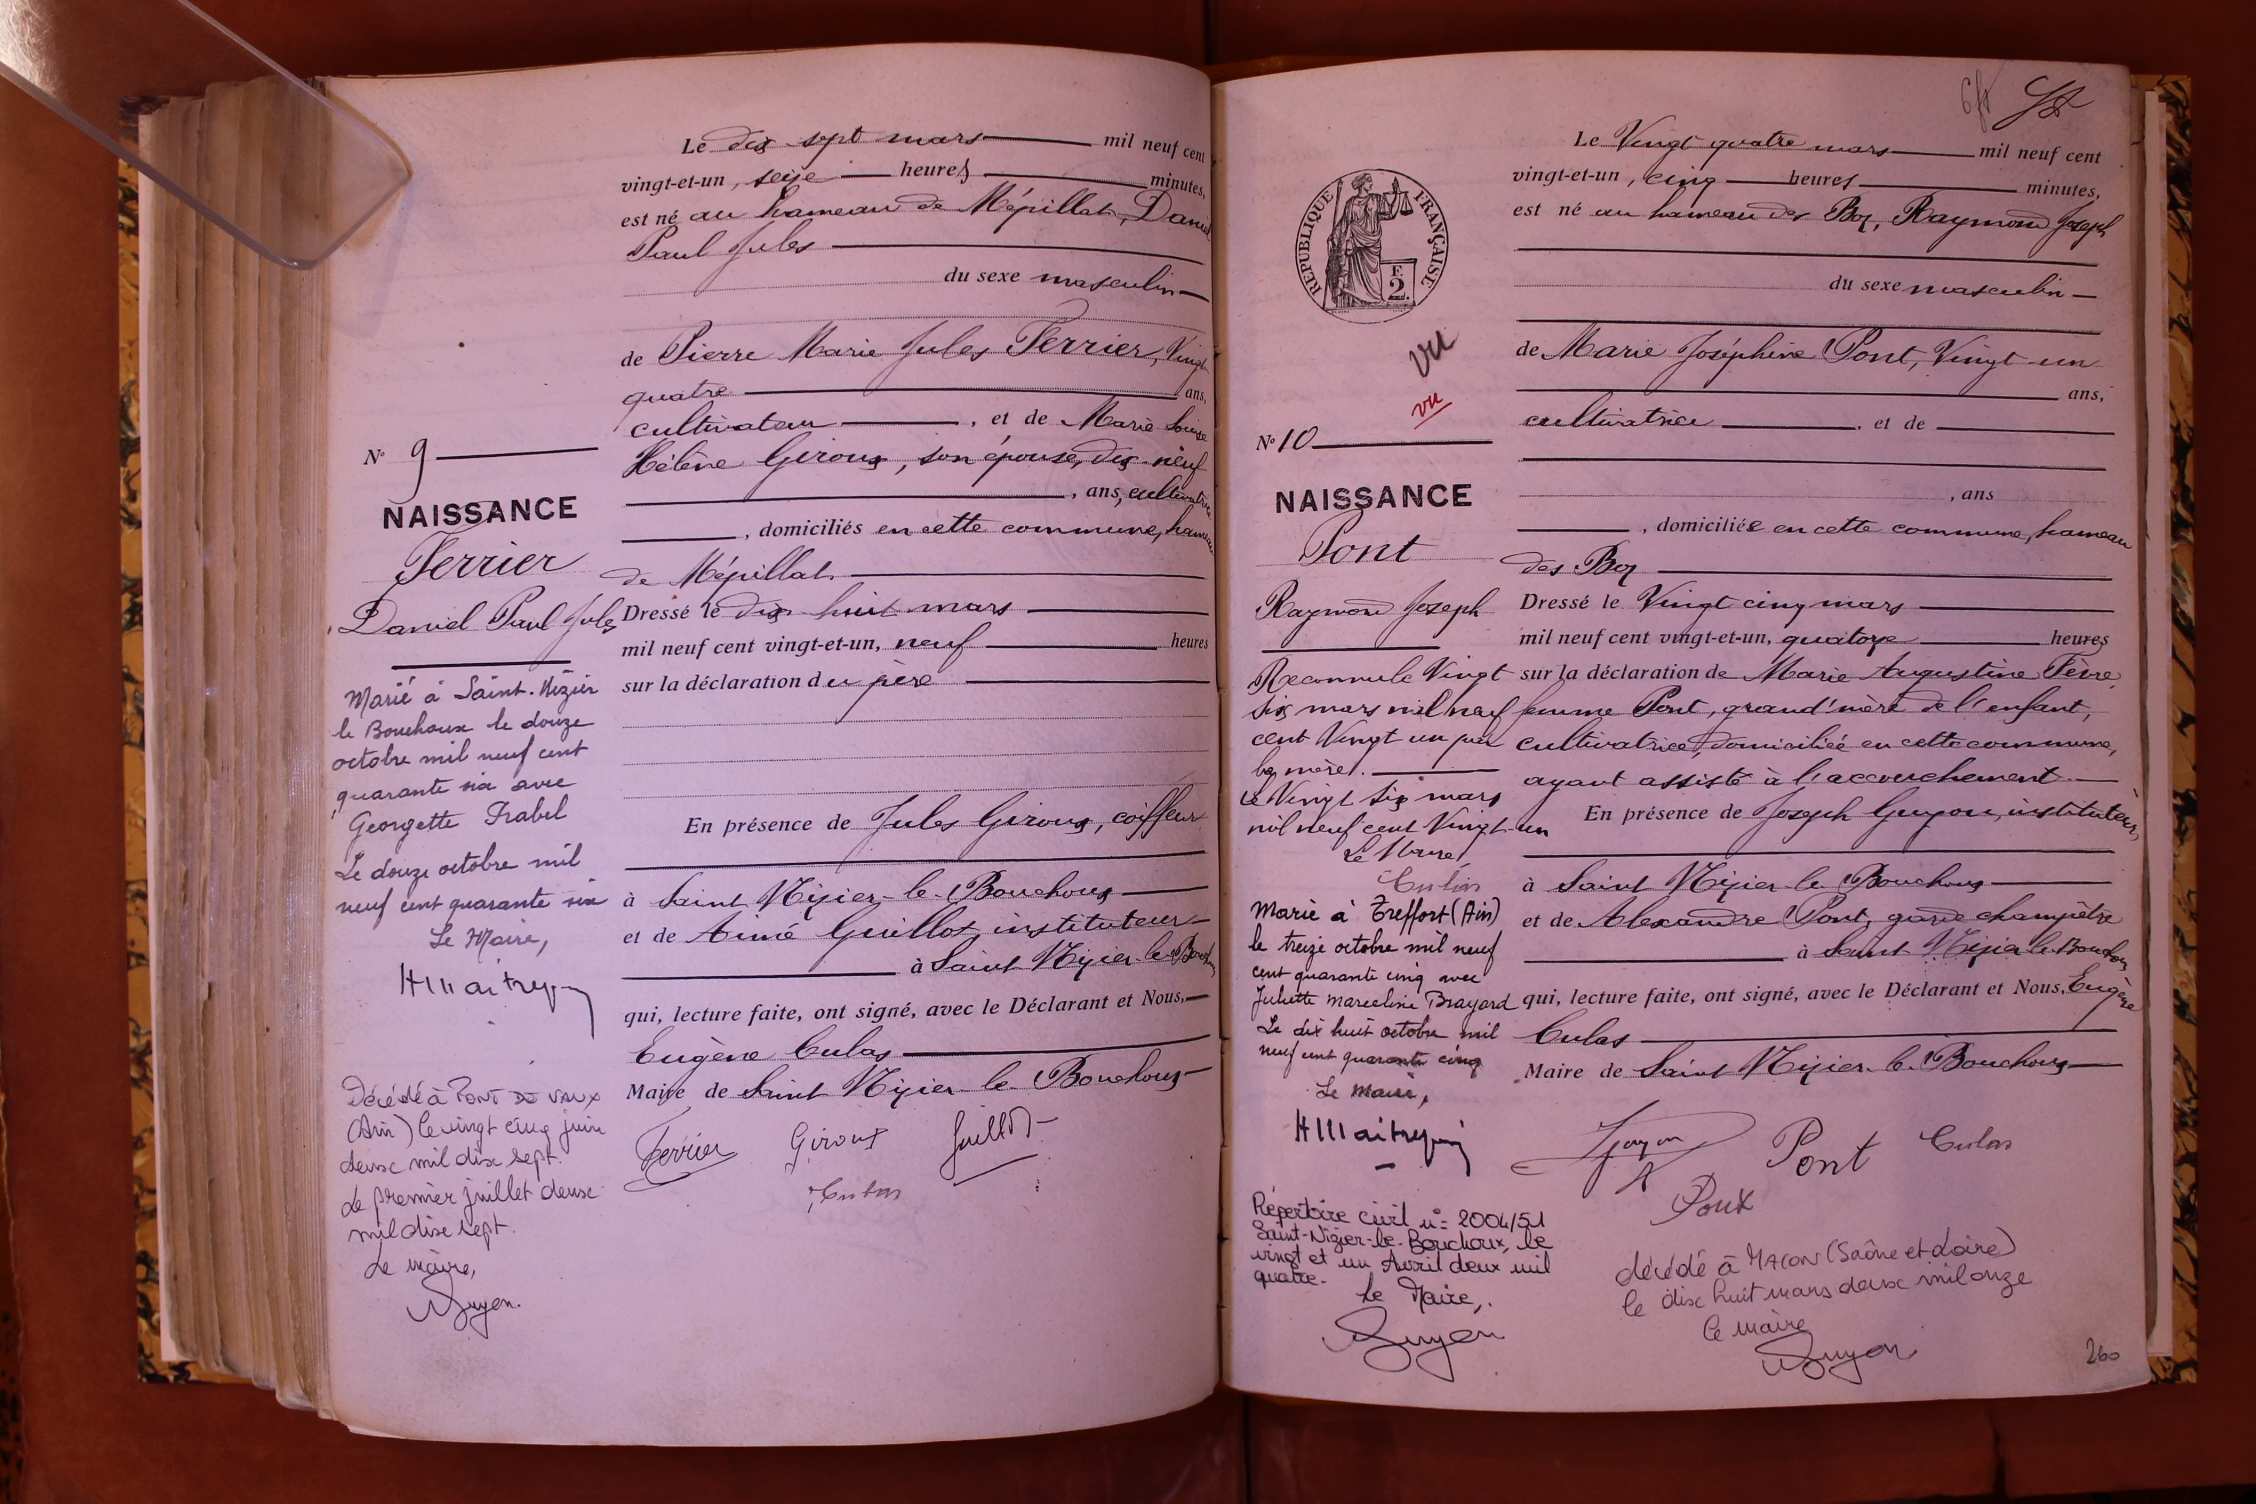 Le dix sept mars mil neuf cent
vingt-et-un, seize heures minutes,
est né au hameau de Mépillat, Daniel
Paul Jules
du sexe masculin
de Pierre Marie Jules Ferrier, Vingt
quatre ans,
cultivateur, et de Marie Louise
Hélène Giroux, son épouse, dix-neuf
, ans, cultivatrice
, domiciliés en cette commune, hameau
de Mépillat
Dressé le dix huit mars
mil neuf cent vingt-et-un, neuf heures
sur la déclaration du père
En présence de Jules Giroux, coiffeur
à Saint Nizier-le-Bouchoux
et de Aimé Guillot, instituteur
à Saint Nizier-le-Bouchoux
qui, lecture faite, ont signé, avec le Déclarant et Nous,
Eugène Culas
Maire de Saint Nizier-le-Bouchoux
Ferrier Giroux Guillot
Culas
N° 9
NAISSANCE
Ferrier
Daniel Paul Jules
Marié à Saint-Nizier
le Bouchoux le douze
octobre mil neuf cent
quarante six avec
Georgette Isabel
Le douze octobre mil
neuf cent quarante six
Le Maire,
Décédé à PONT DE VAUX
(Ain) le vingt cinq juin
deux mil dix sept.
Le premier juillet deux
mil dix sept.
Le maire,
Guyon.
Le Vingt quatre mars mil neuf cent
vingt-et-un, cinq heures minutes,
est né au hameau des Boz, Raymond Joseph
du sexe masculin
de Marie Joséphine Pont, Vingt un
ans,
cultivatrice, et de
, ans
, domiciliée en cette commune, hameau
des Boz
Dressé le Vingt cinq mars
mil neuf cent vingt-et-un, quatorze heures
sur la déclaration de Marie Augustine Fèvre,
femme Pont, grand'mère de l'enfant,
cultivatrice, domiciliée en cette commune,
ayant assisté à l'accouchement
En présence de Joseph Guyon, instituteur,
à Saint Nizier-le-Bouchoux
et de Alexandre Pont, garde champêtre
à Saint Nizier-le-Bouchoux
qui, lecture faite, ont signé, avec le Déclarant et Nous, Eugène
Culas
Maire de Saint Nizier-le-Bouchoux
Guyon Pont Culas
décédé à MACON (Saône et Loire)
le dix huit mars deux mil onze
le maire
Guyon
260
RÉPUBLIQUE FRANÇAISE
2
vu
vu
N° 10
NAISSANCE
Pont
Raymond Joseph
Reconnu le Vingt
six mars mil neuf
cent Vingt un par
sa mère.
Le Vingt six mars
mil neuf cent Vingt-un
Le Maire,
Culas
Marié à Treffort (Ain)
le treize octobre mil neuf
cent quarante cinq avec
Juliette Marceline Brayard
Le dix huit octobre mil
neuf cent quarante cinq
Le Maire,
Répertoire civil n° 2004/51
Saint-Nizier-le-Bouchoux, le
vingt et un Avril deux mil
quatre.
Le Maire,
Guyon